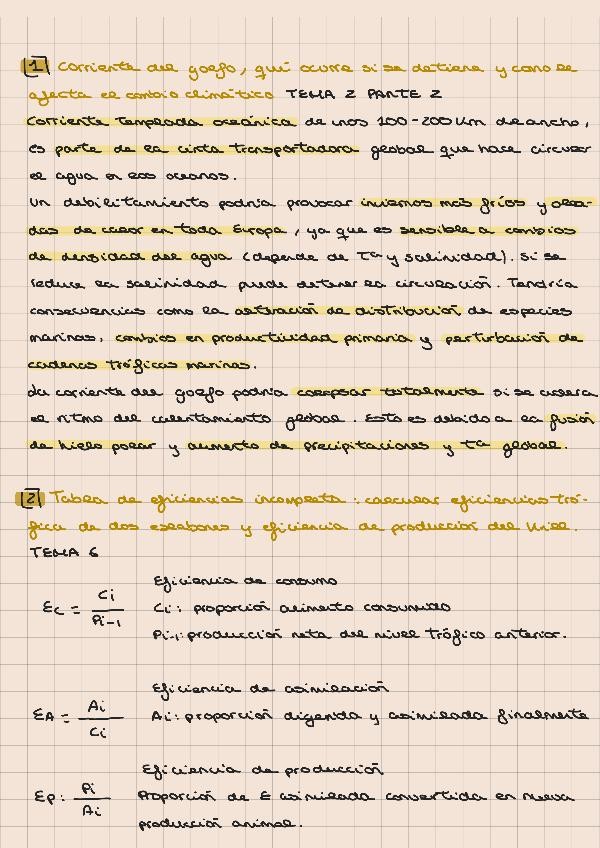 1 Corriente del golfo, qué ocurre si se detiene y como le
afecta el cambio climático TEMA 2 PARTE 2
Corriente templada oceánica de unos 100-200 km de ancho,
es parte de la cinta transportadora global que hace circular
el agua en los océanos.
Un debilitamiento podría provocar inviernos más fríos y olea-
das de calor en toda Europa, ya que es sensible a cambios
de densidad del agua (depende de Tª y salinidad). Si se
reduce la salinidad puede detener la circulación. Tendría
consecuencias como la alteración de distribución de especies
marinas, cambios en productividad primaria y perturbación de
cadenas tróficas marinas.
La corriente del golfo podría colapsar totalmente si se acelera
el ritmo del calentamiento global. Esto es debido a la fusión
de hielo polar y aumento de precipitaciones y Tª global.
2 Tabla de eficiencias incompleta: calcular eficiencias tró-
fica de dos eslabones y eficiencia de producción del Krill.
TEMA 6
Eficiencia de consumo
Ec = Ci / Pi-1 Ci: proporción alimento consumido
Pi-1: producción neta del nivel trófico anterior.
Eficiencia de asimilación
EA = Ai / Ci Ai: proporción digerida y asimilada finalmente
Eficiencia de producción
Ep: Pi / Ai Proporción de E asimilada convertida en nueva
producción animal.